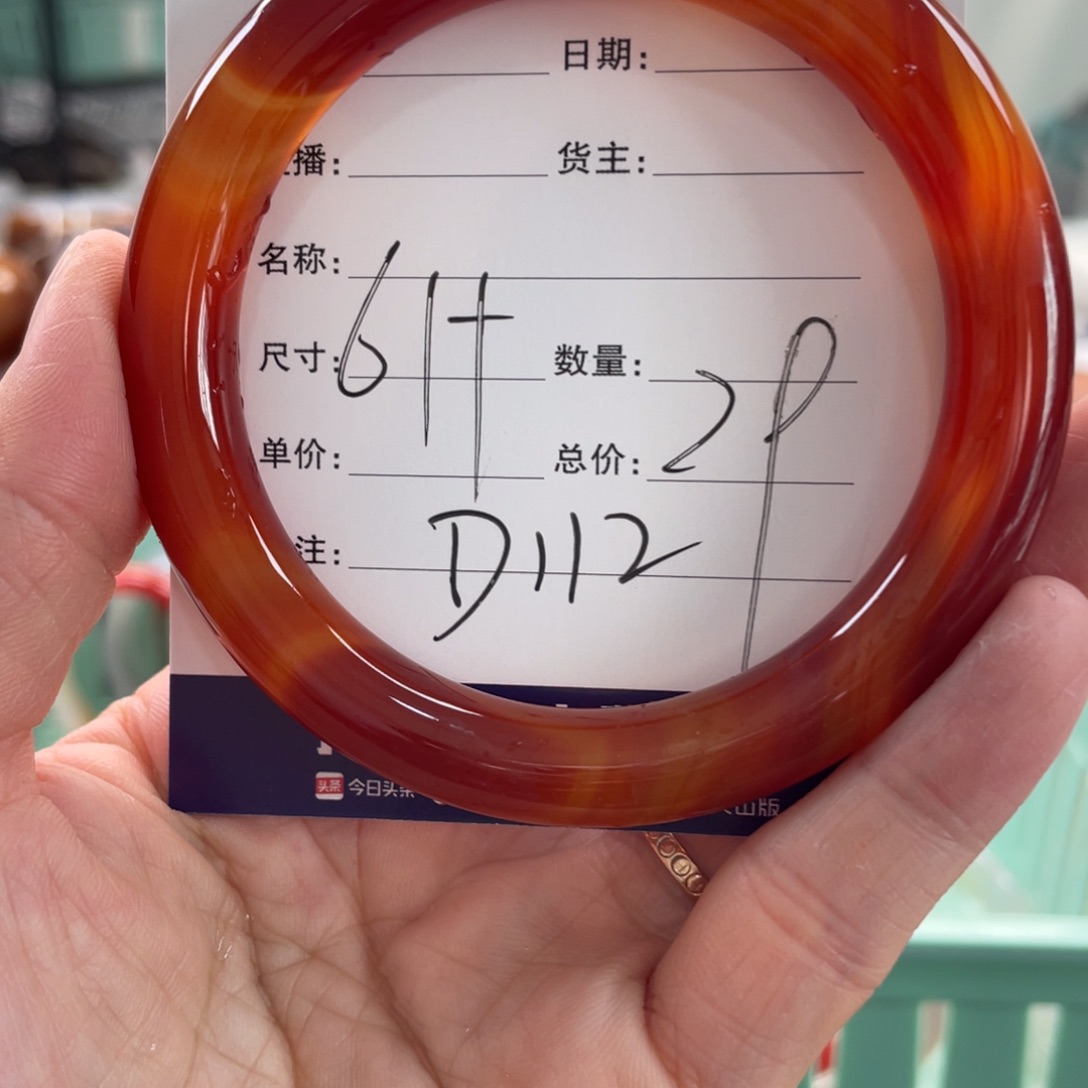 日期:
播: 货主:
名称:
尺寸: 数量:
单价: 总价:
注: D112
头条 今日头条